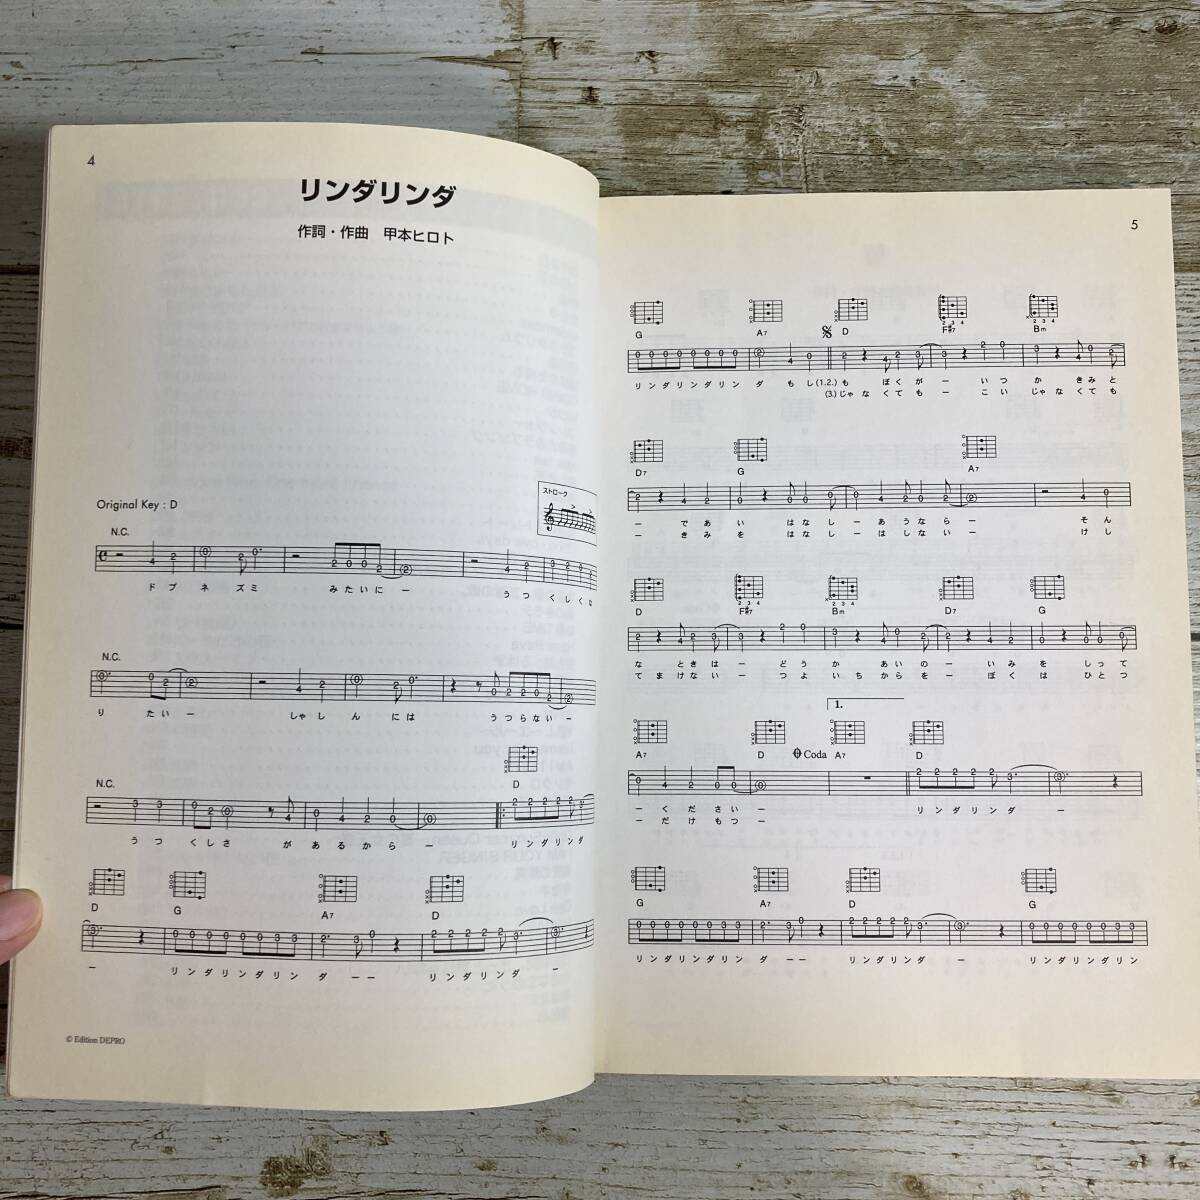 4
リンダリンダ
作詞・作曲　甲本ヒロト
Original Key : D
ストローク
N.C.
ド ブ ネ ズ ミ み た い に ー う つ く し く な
N.C.
り た い ー しゃ し ん に は う つ ら な い ー
D
N.C.
う つ く し さ が あ る か ら ー リ ン ダ リ ン ダ
D G A7 D
ー リ ン ダ リ ン ダ リ ン ダ ー ー リ ン ダ リ ン ダ ー
© Edition DEPRO
5
G A7 D F#7 Bm
リ ン ダ リ ン ダ リ ン ダ も し (1.2.) も ぼ く が ー い つ か き み と
(3.) じゃ な く て も ー こ い じゃ な く て も
D7 G A7
ー で あ い は な し ー あ う な ら ー そ ん
ー き み を は な し ー は し な い ー け し
D F#7 Bm D7 G
な と き は ー ど う か あ い の ー い み を し っ て
て ま け な い ー つ よ い ち か ら を ー ぼ く は ひ と つ
1.
A7 D Coda A7 D
ー く だ さ い ー リ ン ダ リ ン ダ ー
ー だ け も つ ー
G A7 D G
リ ン ダ リ ン ダ リ ン ダ ー ー リ ン ダ リ ン ダ ー リ ン ダ リ ン ダ リ ン